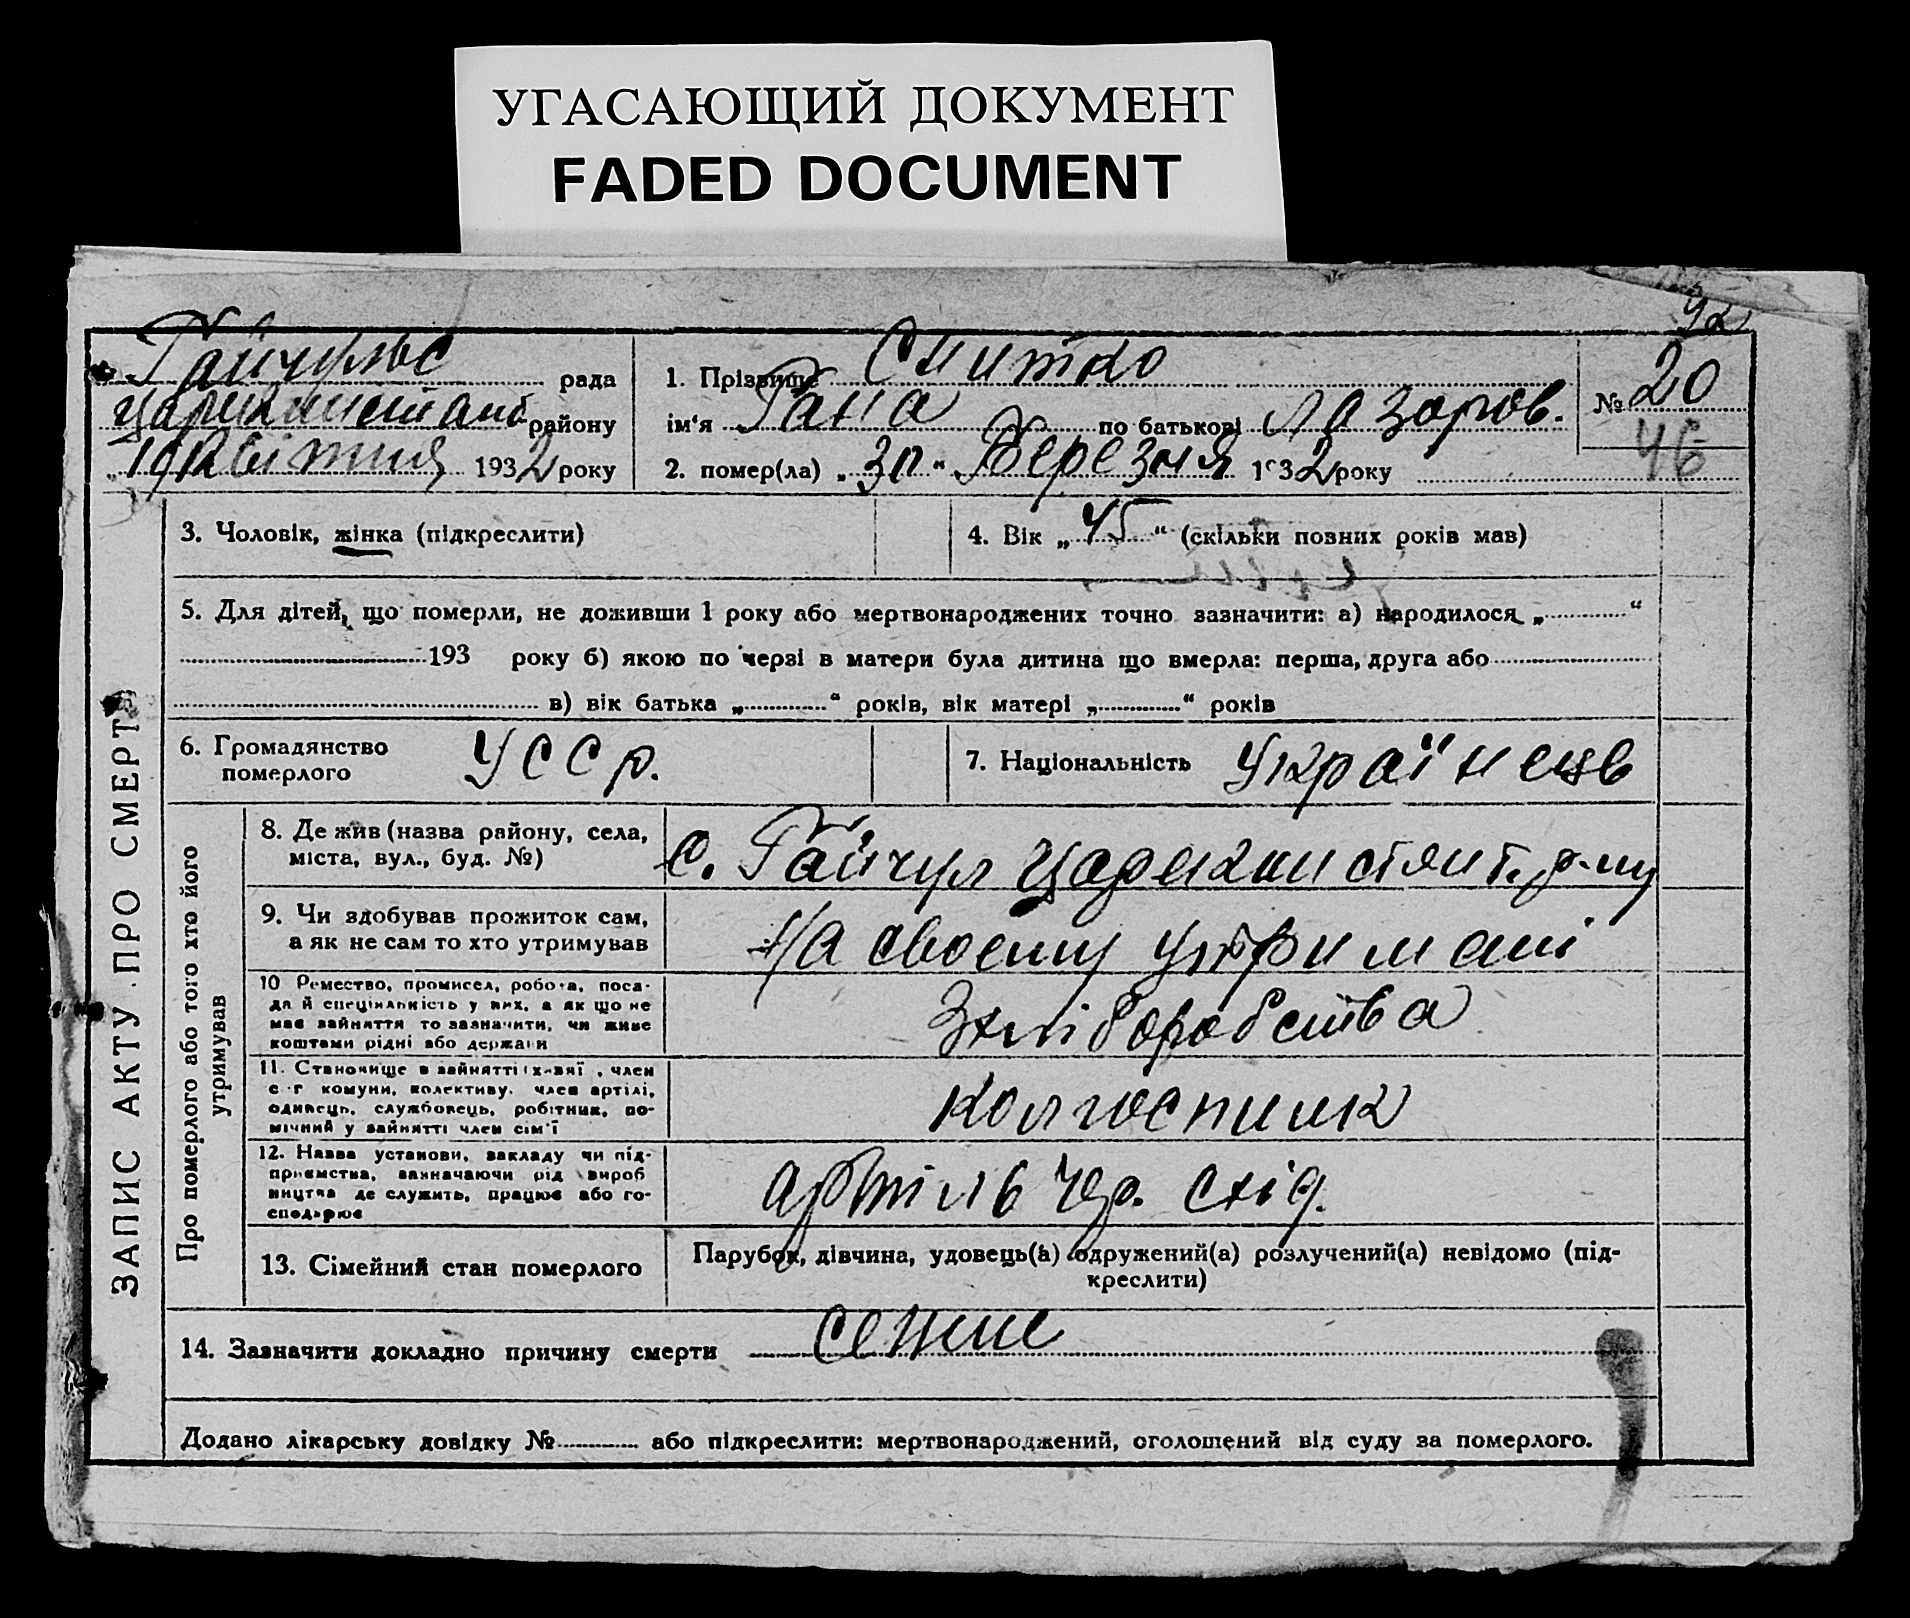 УГАСАЮЩИЙ ДОКУМЕНТ
FADED DOCUMENT
92
Гайчульс рада
району
1932 року
1. Прізвище Снитко
ім'я Гана по батькові Лазоров.
2. помер(ла) „30“ Березня 1932 року
№ 20
46
3. Чоловік, жінка (підкреслити)
4. Вік „45“ (скільки повних років мав)
5. Для дітей, що померли, не доживши 1 року або мертвонароджених точно зазначити: а) народилося „ “
193 року б) якою по черзі в матери була дитина що вмерла: перша, друга або
в) вік батька „ “ років, вік матері „ “ років
6. Громадянство
померлого
УССР.
7. Національність Українець
ЗАПИС АКТУ ПРО СМЕРТЬ
Про померлого або того хто його
утримував
8. Де жив (назва району, села,
міста, вул., буд. №)
с. Гайчул р-ну
9. Чи здобував прожиток сам,
а як не сам то хто утримував
На своему утримані
10 Ремество, промисел, робота, поса-
да й спеціяльність у них, а як що не
має зайняття то зазначити, чи живе
коштами рідні або держави
Хліборобства
11. Становище в зайнятті (хазяї, член
с-г комуни, колективу, член артілі,
одинець, службовець, робітник, по-
мічний у зайнятті член сім'ї
колгоспник
12. Назва установи, закладу чи під-
приємства, зазначаючи рід вироб
ництва де служить, працює або го-
сподарює
артіль Чер. схід.
13. Сімейний стан померлого
Парубок, дівчина, удовець(а) одружений(а) розлучений(а) невідомо (під-
креслити)
14. Зазначити докладно причину смерти
Додано лікарську довідку № або підкреслити: мертвонароджений, оголошений від суду за померлого.